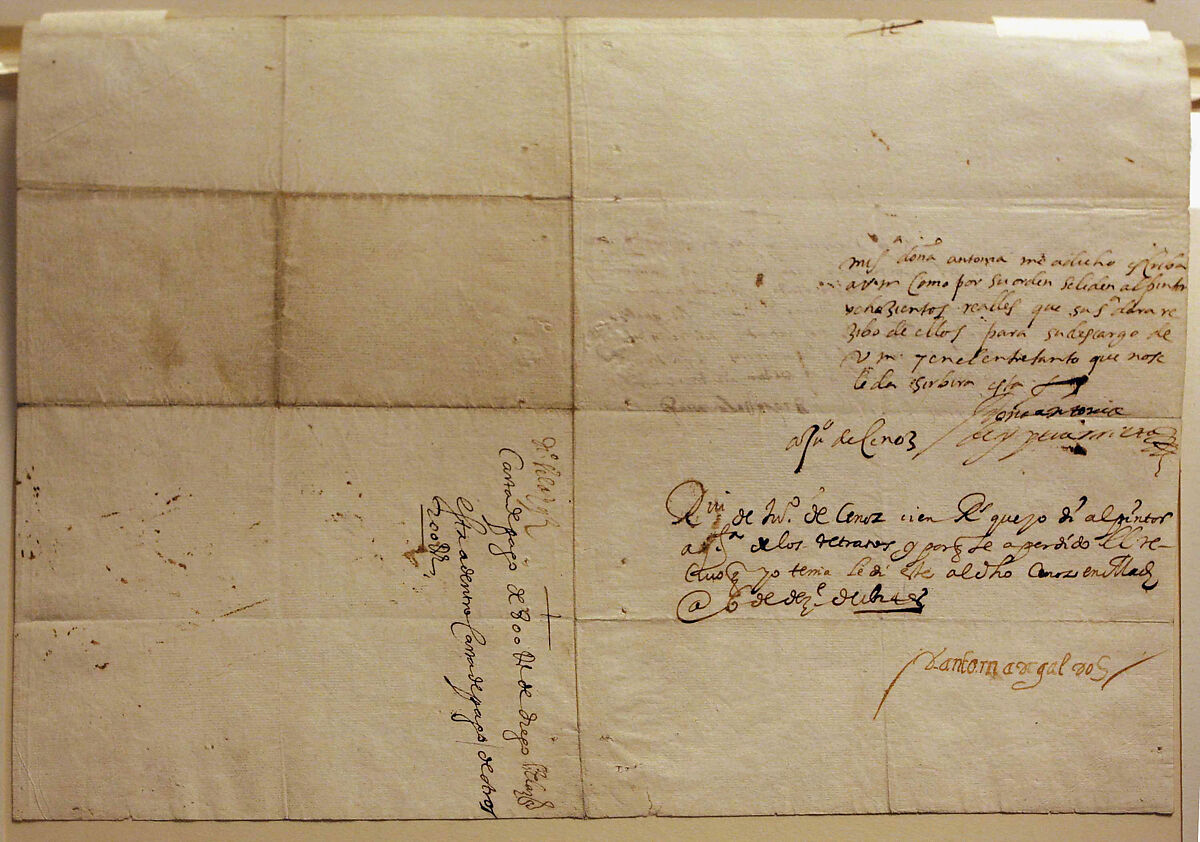 mi sª doña antonia me a dicho escriba
a v m como por su orden se le den al pintor
ochozientos realles que su sª dara re
zibo de ellos para su descargo de
v m y en el entretanto que no se
le da serbira esta
doña antonia
de ypeñarrieta
a Juº de Cenoz
Reciui de Juº de Cenoz cien Rs que yo di al pintor
a qta de los retratos y porq se a perdido el re-
ciuo q yo tenia le di este al dho Cenoz en Madd
a 6 de deze de 1624
D. antonia de galdos
dº Velazqz
Carta de pago de 800 Rs de diego Velazqz
esta adentro Carta de pago de otros